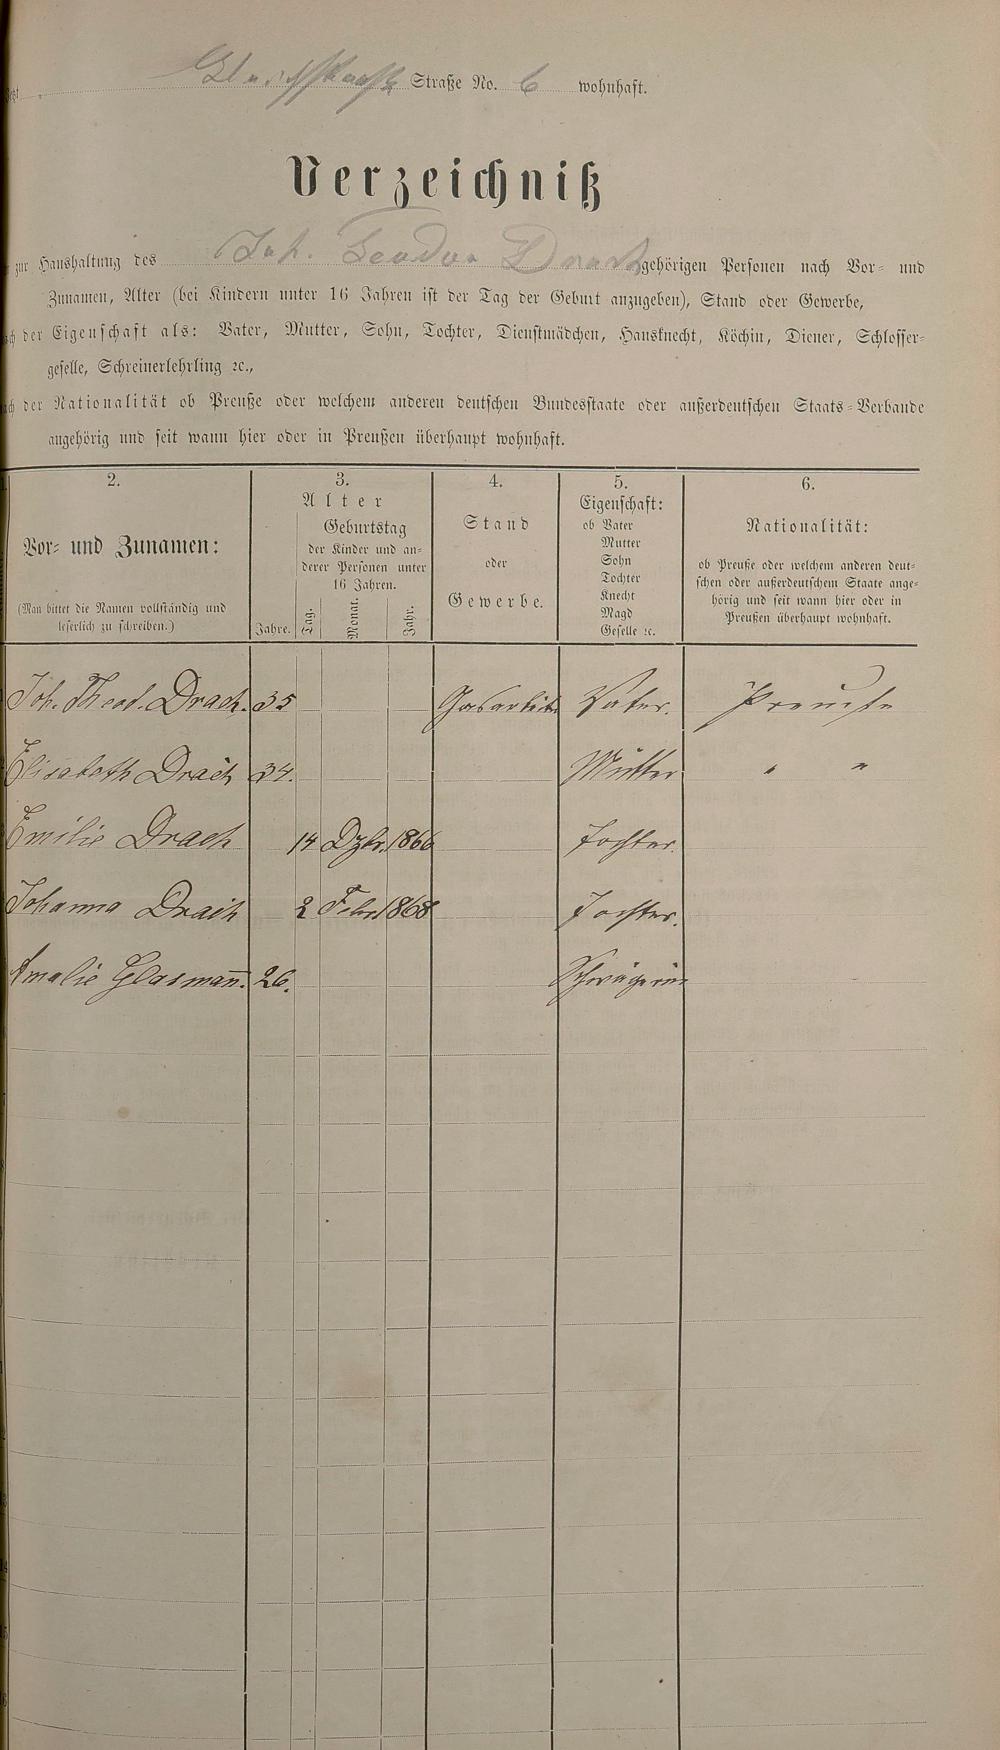 Straße No. 6 wohnhaft.
Verzeichniß
zur Haushaltung des Joh. Teodor Drach gehörigen Personen nach Vor- und
Zunamen, Alter (bei Kindern unter 16 Jahren ist der Tag der Geburt anzugeben), Stand oder Gewerbe,
der Eigenschaft als: Vater, Mutter, Sohn, Tochter, Dienstmädchen, Hausknecht, Köchin, Diener, Schlosser-
geselle, Schreinerlehrling ꝛc.,
der Nationalität ob Preuße oder welchem anderen deutschen Bundesstaate oder außerdeutschen Staats-Verbande
angehörig und seit wann hier oder in Preußen überhaupt wohnhaft.
2. 3. 4. 5. 6.
Vor- und Zunamen:
(Man bittet die Namen vollständig und
leserlich zu schreiben.)
Alter
Jahre.
Geburtstag
der Kinder und an-
derer Personen unter
16 Jahren.
Tag. Monat. Jahr.
Stand
oder
Gewerbe.
Eigenschaft:
ob Vater
Mutter
Sohn
Tochter
Knecht
Magd
Geselle ꝛc.
Nationalität:
ob Preuße oder welchem anderen deut-
schen oder außerdeutschem Staate ange-
hörig und seit wann hier oder in
Preußen überhaupt wohnhaft.
Joh. Theod. Drach. 35 Vater. Preuße
Elisabeth Drach 34. Mutter " "
Emilie Drach 14 Dzbr. 1866 Tochter.
Johanna Drach 2 Febr 1868 Tochter.
Amalie Glasman̅. 26. Schwägerin